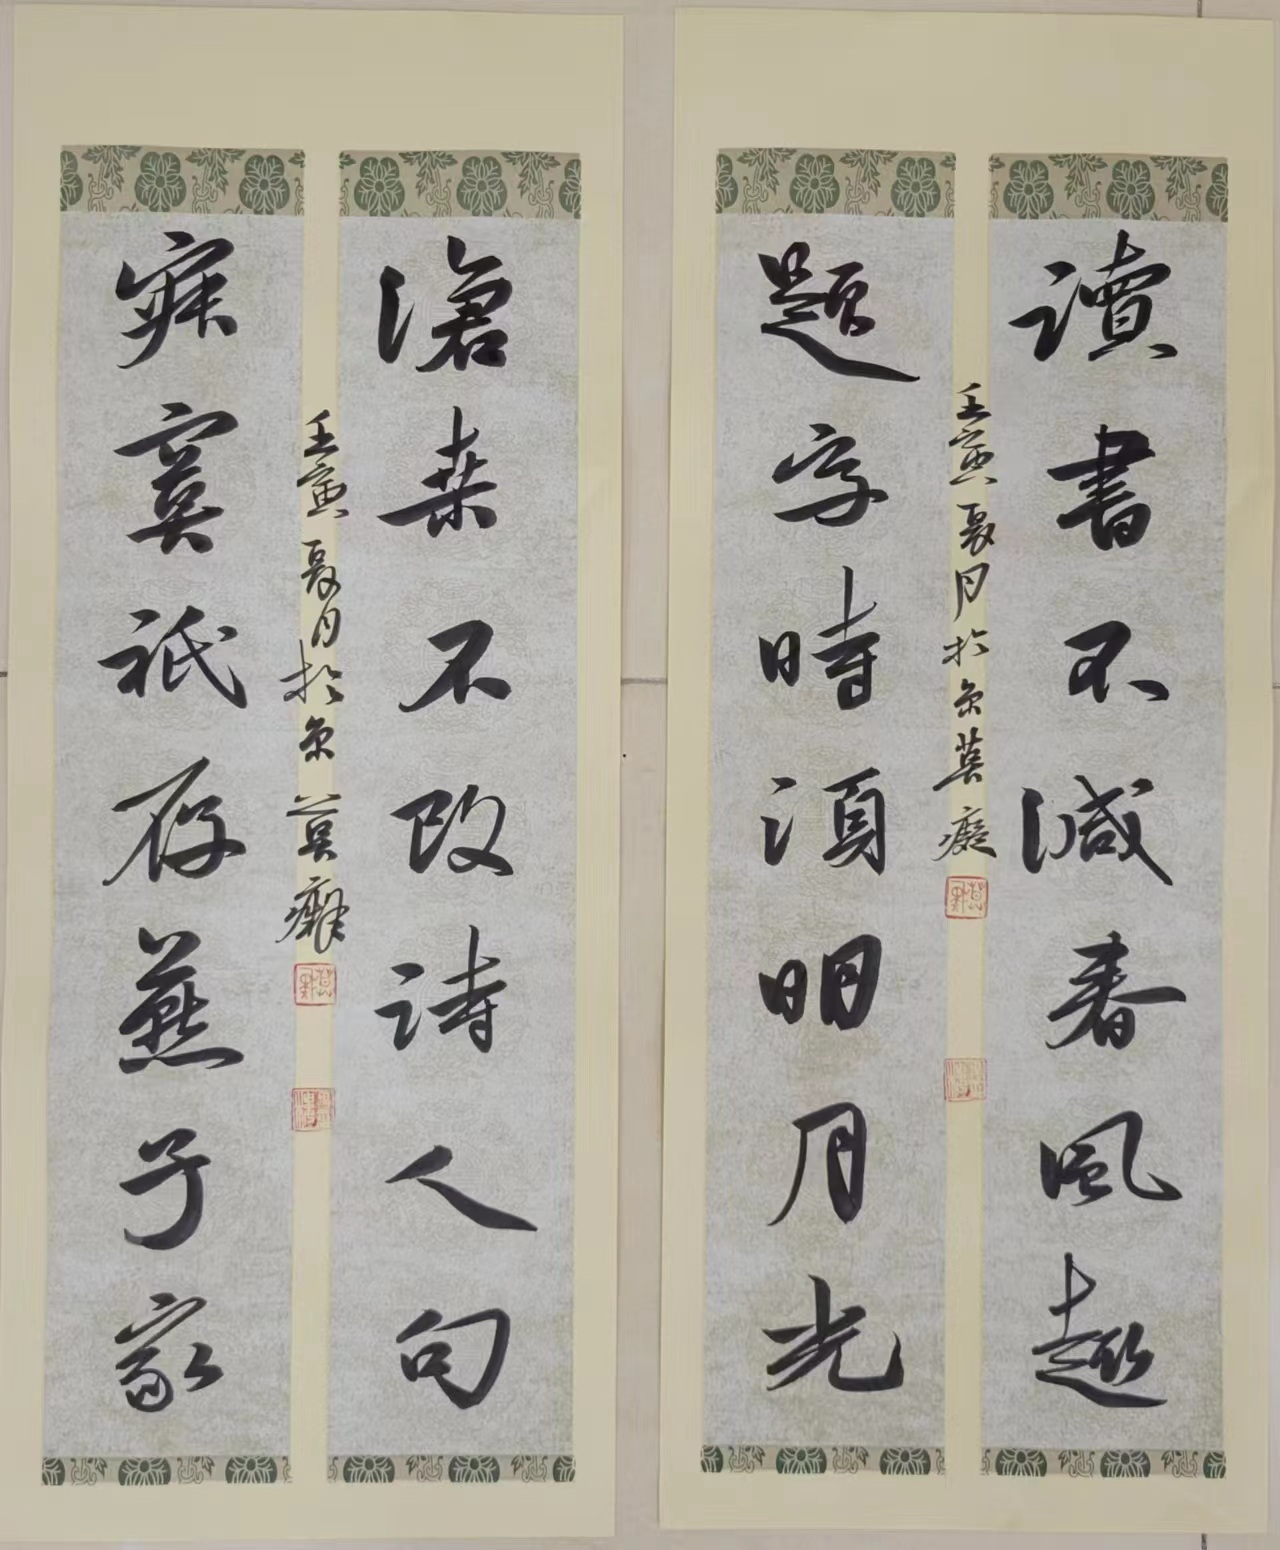 讀書不減春風趣
題字時須明月光
壬寅夏月於京莫癡
滄桑不改詩人句
寂寞祇存燕子家
壬寅夏月於京莫癡